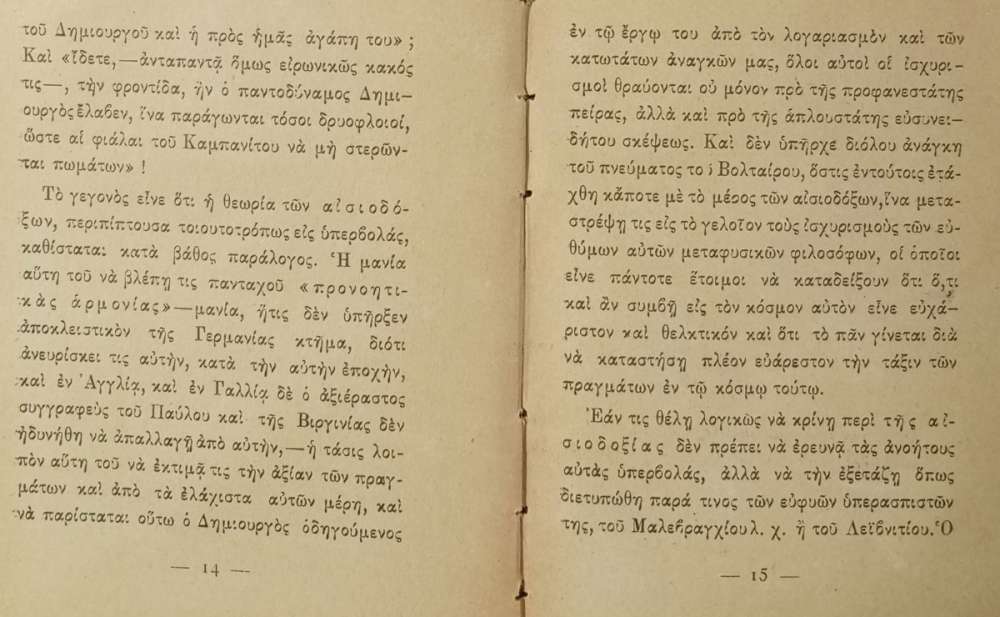 τοῦ Δημιουργοῦ καὶ ἡ πρὸς ἡμᾶς ἀγάπη του» ;
Καὶ «ἴδετε,—ἀνταπαντᾷ ὅμως εἰρωνικῶς κακός
τις—, τὴν φροντίδα, ἣν ὁ παντοδύναμος Δημι—
ουργὸς ἔλαβεν, ἵνα παράγωνται τόσοι δρυοφλοιοί,
ὥστε αἱ φιάλαι τοῦ Καμπανίτου νὰ μὴ στερῶν-
ται πωμάτων» !
Τὸ γεγονὸς εἶνε ὅτι ἡ θεωρία τῶν αἰσιοδό-
ξων, περιπίπτουσα τοιουτοτρόπως εἰς ὑπερβολάς,
καθίσταται κατὰ βάθος παράλογος. Ἡ μανία
αὕτη τοῦ νὰ βλέπῃ τις πανταχοῦ «προνοητι-
κὰς ἁρμονίας»—μανία, ἥτις δὲν ὑπῆρξεν
ἀποκλειστικὸν τῆς Γερμανίας κτῆμα, διότι
ἀνευρίσκει τις αὐτήν, κατὰ τὴν αὐτὴν ἐποχήν,
καὶ ἐν Ἀγγλίᾳ, καὶ ἐν Γαλλίᾳ δὲ ὁ ἀξιέραστος
συγγραφεὺς τοῦ Παύλου καὶ τῆς Βιργινίας δὲν
ἠδυνήθη νὰ ἀπαλλαγῇ ἀπὸ αὐτήν,—ἡ τάσις λοι-
πὸν αὕτη τοῦ νὰ ἐκτιμᾷ τις τὴν ἀξίαν τῶν πραγ-
μάτων καὶ ἀπὸ τὰ ἐλάχιστα αὐτῶν μέρη, καὶ
νὰ παρίσταται οὕτω ὁ Δημιουργὸς ὁδηγούμενος
— 14 —
ἐν τῷ ἔργῳ του ἀπὸ τὸν λογαριασμὸν καὶ τῶν
κατωτάτων ἀναγκῶν μας, ὅλοι αὐτοὶ οἱ ἰσχυρι-
σμοὶ θραύονται οὐ μόνον πρὸ τῆς προφανεστάτης
πείρας, ἀλλὰ καὶ πρὸ τῆς ἁπλουστάτης εὐσυνει—
δήτου σκέψεως. Καὶ δὲν ὑπῆρχε διόλου ἀνάγκη
τοῦ πνεύματος το ῦ Βολταίρου, ὅστις ἐντούτοις ἐτά-
χθη κἄποτε μὲ τὸ μέρος τῶν αἰσιοδόξων,ἵνα μετα-
στρέψῃ τις εἰς τὸ γελοῖον τοὺς ἰσχυρισμοὺς τῶν εὐ-
θύμων αὐτῶν μεταφυσικῶν φιλοσόφων, οἱ ὁποῖοι
εἶνε πάντοτε ἕτοιμοι νὰ καταδείξουν ὅτι ὅ,τι
καὶ ἂν συμβῇ εἰς τὸν κόσμον αὐτὸν εἶνε εὐχά-
ριστον καὶ θελκτικόν καὶ ὅτι τὸ πᾶν γίνεται διὰ
νὰ καταστήσῃ πλέον εὐάρεστον τὴν τάξιν τῶν
πραγμάτων ἐν τῷ κόσμῳ τούτῳ.
Ἐάν τις θέλῃ λογικῶς νὰ κρίνῃ περὶ τῆς αἰ-
σιοδοξίας δὲν πρέπει νὰ ἐρευνᾷ τὰς ἀνοήτους
αὐτὰς ὑπερβολάς, ἀλλὰ νὰ τὴν ἐξετάζῃ ὅπως
διετυπώθη παρά τινος τῶν εὐφυῶν ὑπερασπιστῶν
της, τοῦ Μαλεβραγχίου λ. χ. ἢ τοῦ Λεϊβνιτίου. Ὁ
— 15 —